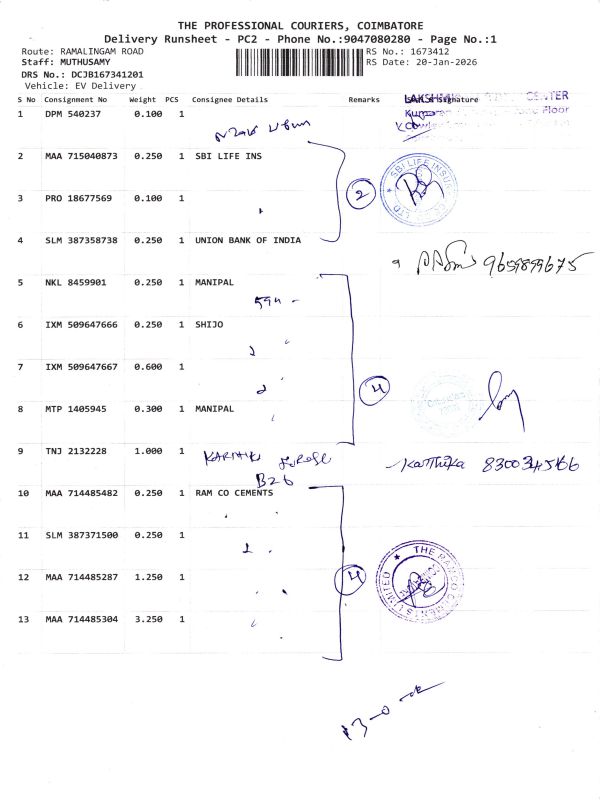 THE PROFESSIONAL COURIERS, COIMBATORE
Delivery Runsheet - PC2 - Phone No.:9047080280 - Page No.:1
Route: RAMALINGAM ROAD RS No.: 1673412
Staff: MUTHUSAMY RS Date: 20-Jan-2026
DRS No.: DCJB167341201
Vehicle: EV Delivery
S No Consignment No Weight PCS Consignee Details Remarks Signature
1 DPM 540237 0.100 1
2 MAA 715040873 0.250 1 SBI LIFE INS
3 PRO 18677569 0.100 1
2
4 SLM 387358738 0.250 1 UNION BANK OF INDIA
9659899675
5 NKL 8459901 0.250 1 MANIPAL
6 IXM 509647666 0.250 1 SHIJO
7 IXM 509647667 0.600 1
4
8 MTP 1405945 0.300 1 MANIPAL
9 TNJ 2132228 1.000 1 Karthika 8300345166
B26
10 MAA 714485482 0.250 1 RAM CO CEMENTS
11 SLM 387371500 0.250 1
12 MAA 714485287 1.250 1 4 THE RAMCO CEMENTS LIMITED
13 MAA 714485304 3.250 1
13-0-